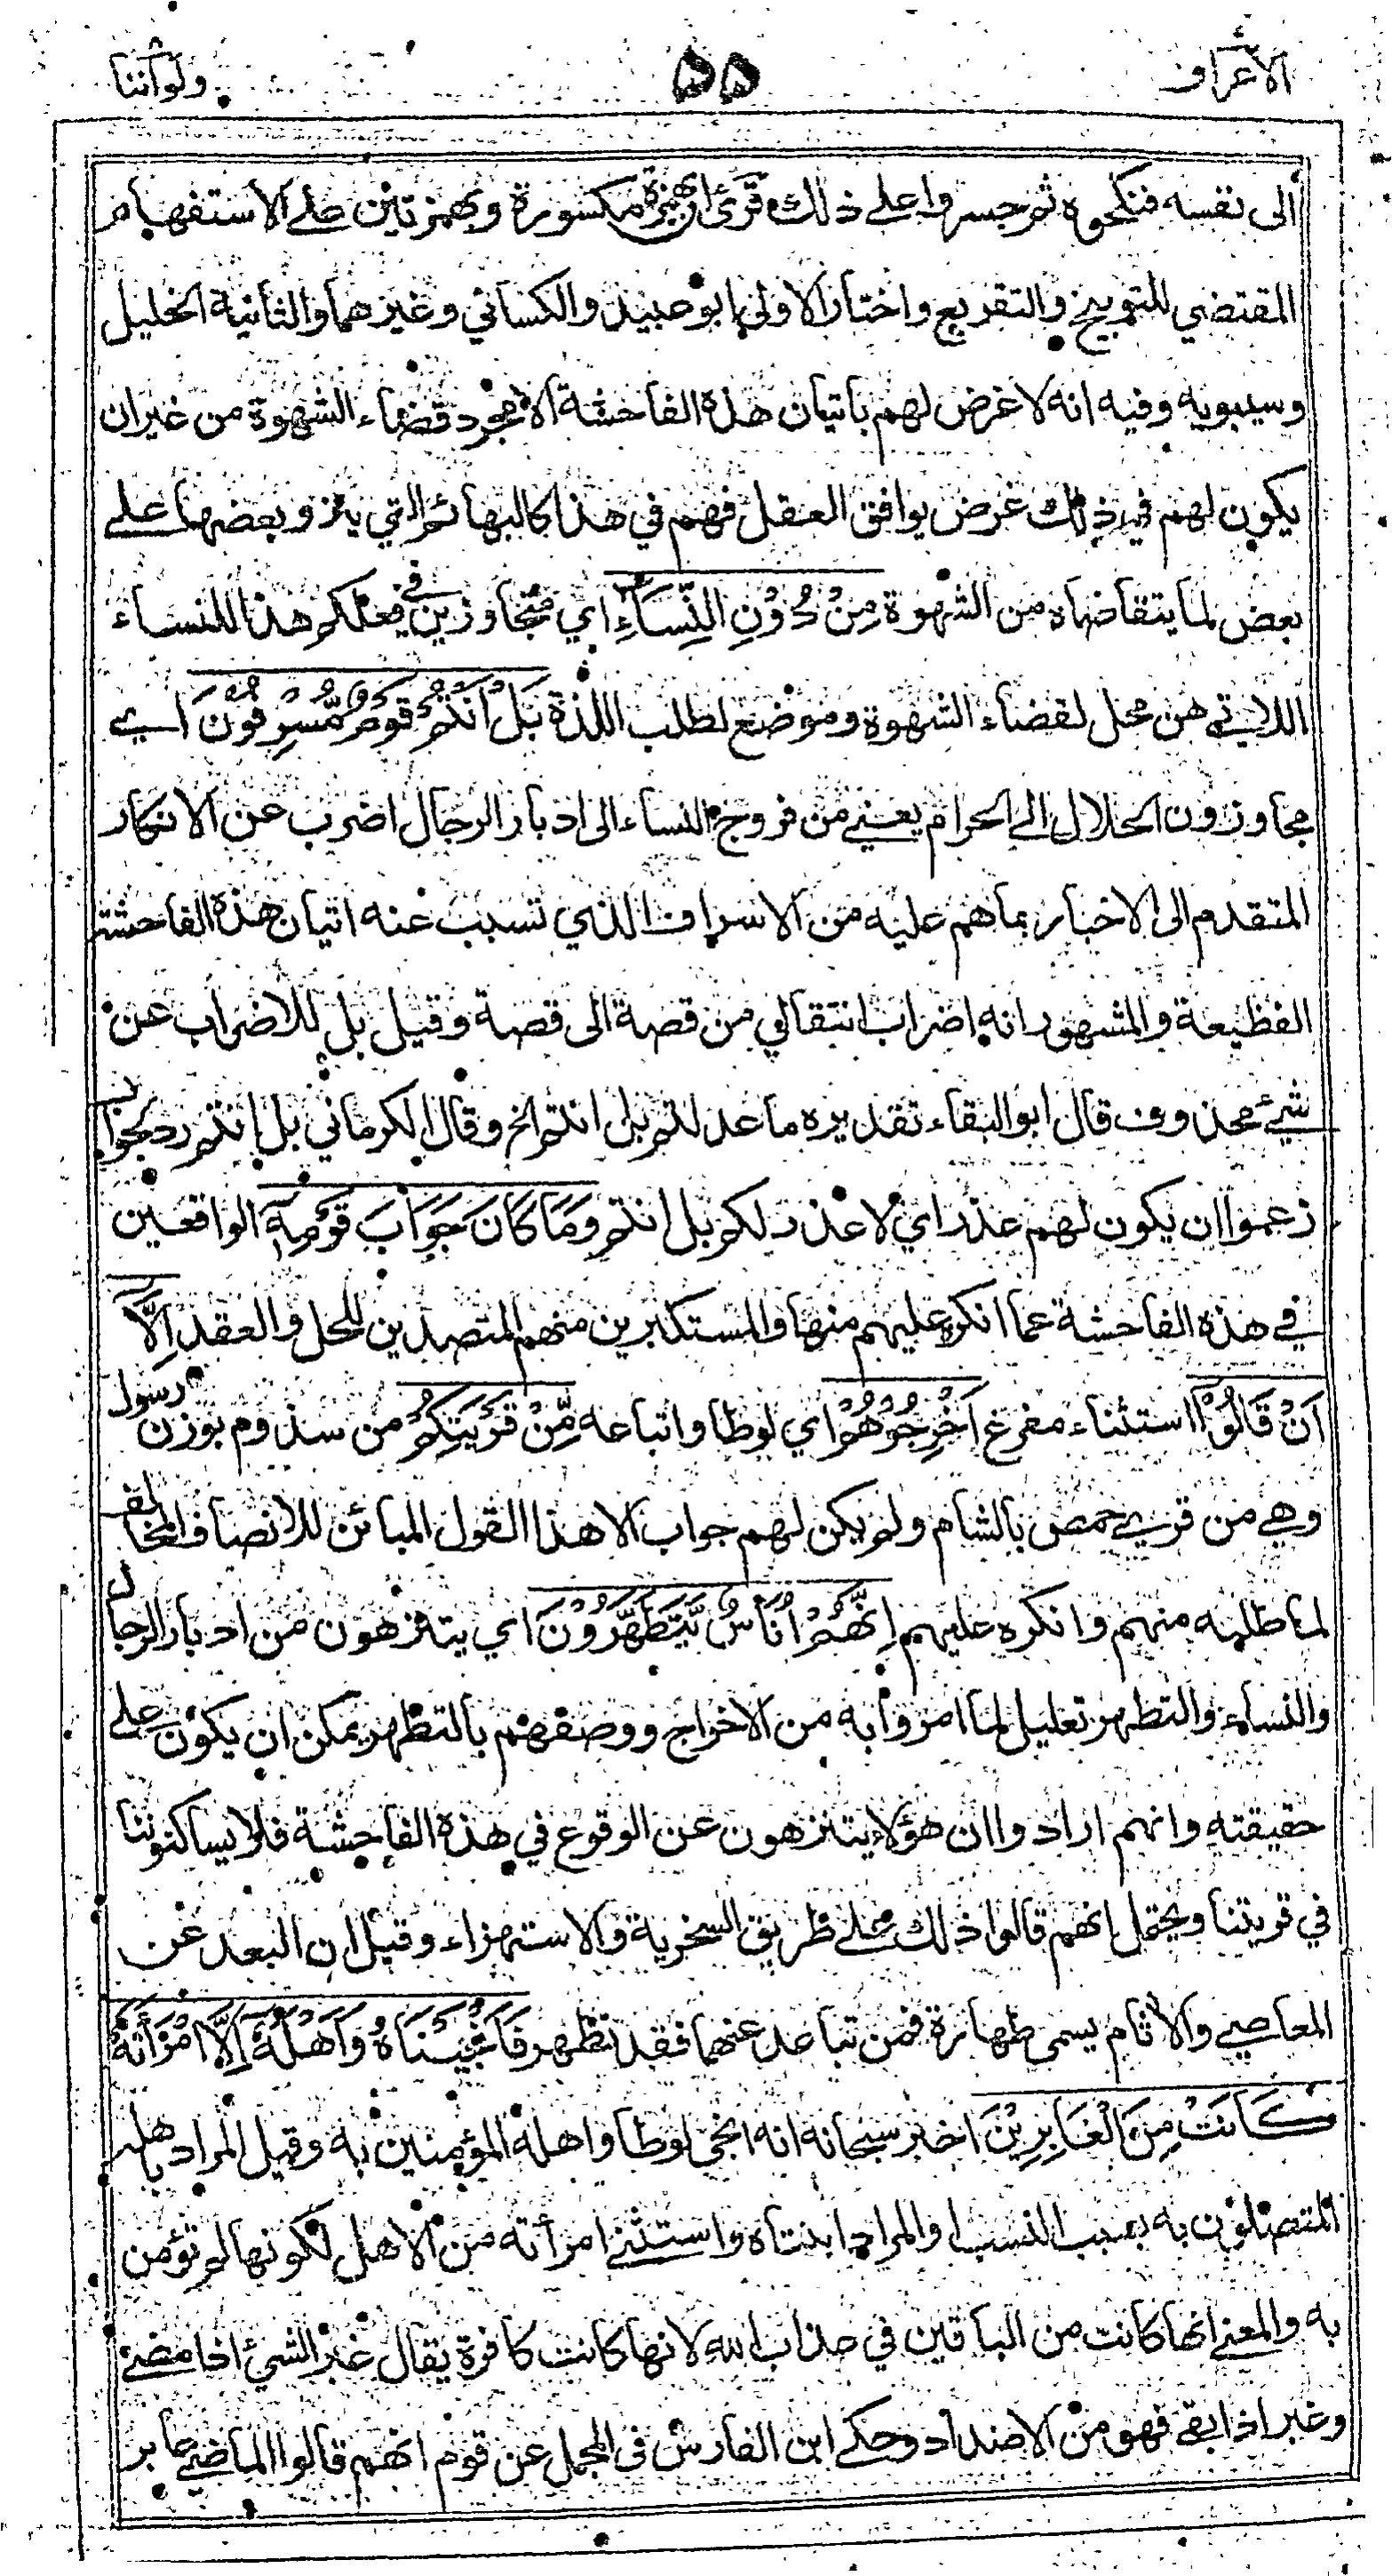 الاعراف ۵۵ ولو أننا
الى نفسه فنكحوه ثم جسروا على ذلك قرئ ان بهمزة مكسورة وبهمزتين على الاستفهام
المقتضي للتوبيخ والتقريع واختار الاولى ابو عبيد والكسائي وغيرهما والثانية الخليل
وسيبويه وفيه انه لا غرض لهم باتيان هذه الفاحشة الا مجرد قضاء الشهوة من غير ان
يكون لهم في ذلك غرض يوافق العقل فهم في هذا كالبهائم التي ينزو بعضها على
بعض لما يتقاضاه من الشهوة مِنْ دُوْنِ النِّسَاءِ اي متجاوزين في فعلكم هذا للنساء
اللاتي هن محل لقضاء الشهوة وموضع لطلب اللذة بَلْ اَنْتُمْ قَوْمٌ مُّسْرِفُوْنَ اي
مجاوزون الحلال الى الحرام يعني من فروج النساء الى ادبار الرجال اضرب عن الانكار
المتقدم الى الاخبار بما هم عليه من الاسراف الذي تسبب عنه اتيان هذه الفاحشة
الفظيعة والمشهور انه اضراب انتقالي من قصة الى قصة وقيل بل للاضراب عن
شيء محذوف قال ابو البقاء تقديره ما عدلتم بل انتم الخ وقال الكرماني بل انتم رد لجواب
زعموا ان يكون لهم عذر اي لا عذر لكم بل انتم وَمَا كَانَ جَوَابَ قَوْمِهٖ الواقعين
في هذه الفاحشة عما انكره عليهم منها والمستكبرين منهم المتصدين للحل والعقد اِلَّا
اَنْ قَالُوْا استثناء مفرغ اَخْرِجُوْهُمْ اي لوطا واتباعه مِّنْ قَرْيَتِكُمْ من سذوم بوزن رسول
وهي من قرى حمص بالشام ولم يكن لهم جواب الا هذا القول المبائن للانصاف المخالف
لما طلبه منهم وانكره عليهم اِنَّهُمْ اُنَاسٌ يَّتَطَهَّرُوْنَ اي يتنزهون من ادبار الرجال
والنساء والتطهر تعليل لما امروا به من الاخراج ووصفهم بالتطهر يمكن ان يكون على
حقيقته وانهم ارادوا ان هؤلاء يتنزهون عن الوقوع في هذه الفاحشة فلا يساكنوننا
في قريتنا ويحتمل انهم قالوا ذلك على طريق السخرية والاستهزاء وقيل ان البعد عن
المعاصي والاثام يسمى طهارة فمن تباعد عنهما فقد تطهر فَاَنْجَيْنَاهُ وَاَهْلَهٗ اِلَّا امْرَاَتَهٗ
كَانَتْ مِنَ الْغَابِرِيْنَ اخبر سبحانه انه انجى لوطا واهله المؤمنين به وقيل المراد باهله
المتصلون به بسبب النسب والمراد ابنتاه واستثنى امرأته من الاهل لكونها لم تؤمن
به والمعنى انها كانت من الباقين في عذاب الله لانها كانت كافرة يقال غبر الشيء اذا مضى
وغبر اذا بقي فهو من الاضداد وحكى ابن الفارس في المجمل عن قوم انهم قالوا الماضي عابر